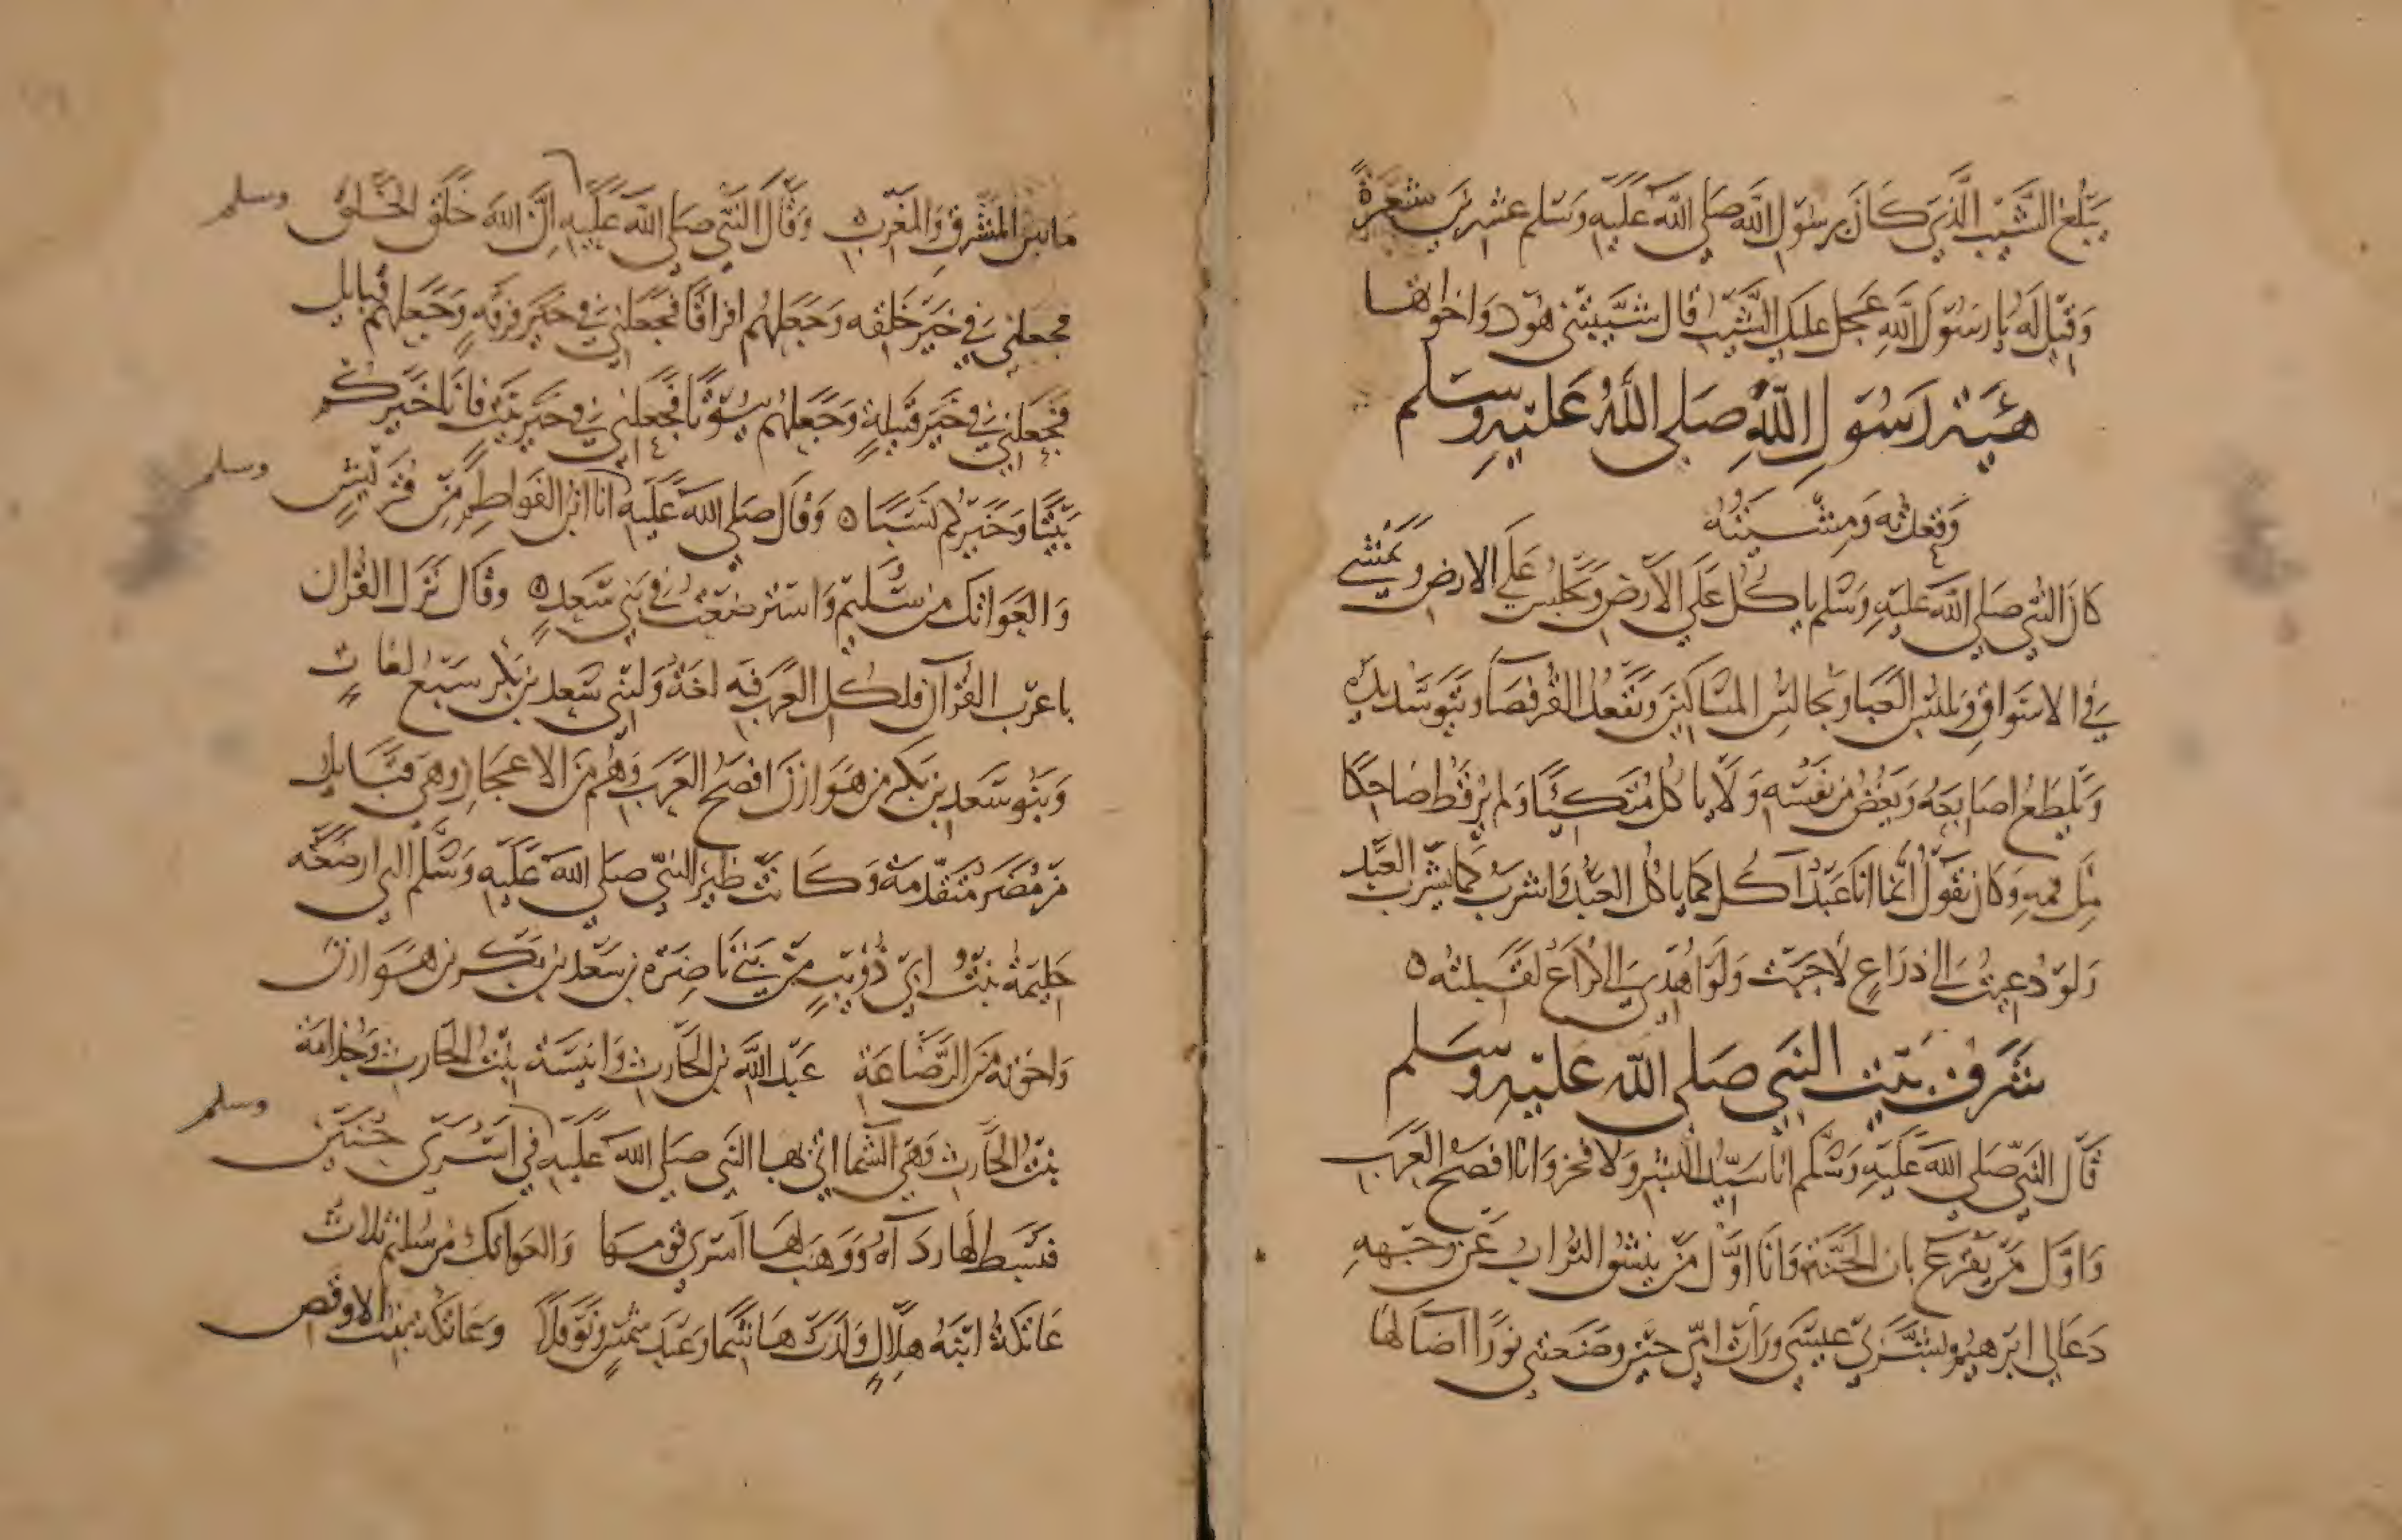 يبلغ الشيب الذي كان برسول الله صلى الله عليه وسلم عشرين شعرة
وقيل له يا رسول الله عجل عليك الشيب قال شيبتني هود واخواتها
هيئة رسول الله صلى الله عليه وسلم
وقعدته ومشيته
كان النبي صلى الله عليه وسلم ياكل على الارض ويجلس على الارض ويمشي
في الاسواق ويلبس العبا ويجالس المساكين ويقعد القرفصا ويتوسد يده
ويلطع اصابعه ويقص من نفسه ولا ياكل متكئا ولم ير قط ضاحكا
مل فمه وكان يقول انما انا عبد آكل كما ياكل العبد واشرب كما يشرب العبد
ولو دعيت الى ذراع لاجبت ولو اهدي الي كراع لقبلته
شرف بيت النبي صلى الله عليه وسلم
قال النبي صلى الله عليه وسلم انا سيد البشر ولا فخر وانا افصح العرب
واول من يقرع باب الجنة وانا اول من ينشق التراب عن وجهه
دعا لي ابرهيم وبشر بي عيسى ورات امي حين وضعتني نورا اضا لها
ما بين المشرق والمغرب وقال النبي صلى الله عليه وسلم ان الله خلق الخلق
فجعلني في خير خلقه وجعلهم افراقا فجعلني في خير فرقه وجعلهم قبايل
فجعلني في خير قبيلة وجعلهم بيوتا فجعلني في خير بيت فانا خيركم
بيتا وخيركم نسبا وقال صلى الله عليه وسلم انا ابن الفواطم من قريش
والعواتك من سليم واسترضعت في بني سعد وقال نزل القران
باعرب القرآن فلكل العرب فيه لغة ولبني سعد بن بكر سبع لغات
وبنو سعد بن بكر من هوازن افصح العرب وهم من الاعجاز وهي قبايل
من مضر متقدمة وكانت ظير النبي صلى الله عليه وسلم التي ارضعته
حليمة بنت ابي ذؤيب من بني ناضرة بن سعد بن بكر بن هوازن
واخوته من الرضاعة عبد الله بن الحارث وانيسة بنت الحارث وجذامة
بنت الحارث وهي الشما اتي بها النبي صلى الله عليه وسلم في اسرى حنين
فبسط لها رداه ووهب لها اسرى قومها والعواتك من سليم ثلاث
عاتكة ابنة هلال ولدت هاشما وعبد شمس ونوفلا وعاتكة بنت الاوقص